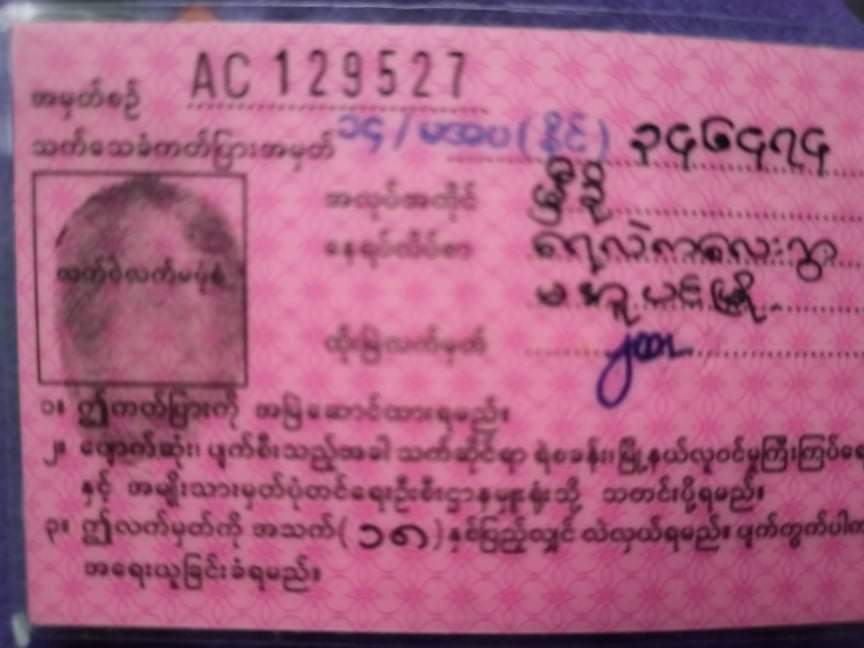 အမှတ်စဉ် AC 129527
သက်သေခံကတ်ပြားအမှတ် ၁၄/မအပ(နိုင်) ၃၄၆၄၇၄
အလုပ်အကိုင်
လက်ဝဲလက်မပုံစံ
နေရပ်လိပ်စာ
မအူပင်မြို့
ထိုးမြဲလက်မှတ်
၁။ ဤကတ်ပြားကို အမြဲဆောင်ထားရမည်။
၂။ ပျောက်ဆုံး၊ ပျက်စီးသည့်အခါ သက်ဆိုင်ရာ ရဲစခန်း၊ မြို့နယ်လူဝင်မှုကြီးကြပ်ရေး
နှင့် အမျိုးသားမှတ်ပုံတင်ရေးဦးစီးဌာနမှူးရုံးသို့ သတင်းပို့ရမည်။
၃။ ဤလက်မှတ်ကို အသက်(၁၈)နှစ်ပြည့်လျှင် လဲလှယ်ရမည်။ ပျက်ကွက်ပါက
အရေးယူခြင်းခံရမည်။